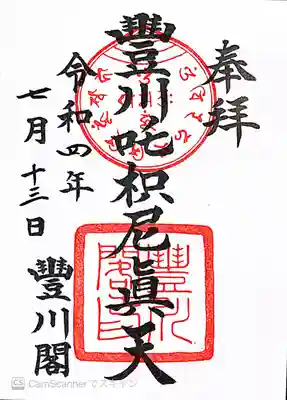 奉拝
豊川吒枳尼眞天
令和四年
七月十三日
豊川閣
豊川閣印
CS CamScannerでスキャン